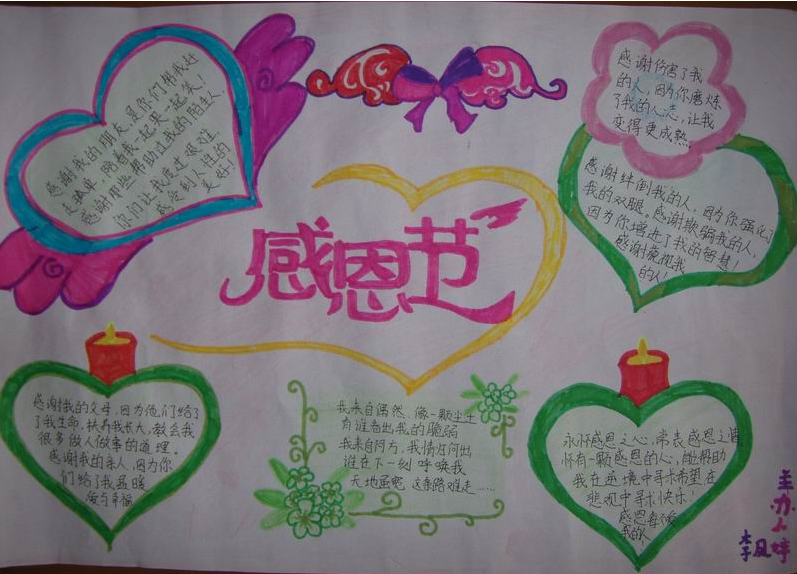 感谢我的朋友,是你们帮我赶
走孤单,陪着我一起哭一起笑!
感谢那些帮助过我的陌生人,
你们让我度过艰难
感受到人性的
美好!
感谢伤害了我
的人,因为你磨炼
了我的心志,让我
变得更成熟。
感谢绊倒我的人,因为你强化了
我的双腿。感谢欺骗我的人,
因为你增进了我的智慧!
感谢藐视我
的人!
感恩节
感谢我的父母,因为他们给了
了我生命,扶养我长大,教会我
很多做人做事的道理。
感谢我的亲人,因为你
们给了我温暖
爱与幸福
我来自偶然、像一颗尘土
有谁看出我的脆弱
我来自何方,我情归何出
谁在下一刻 呼唤我
天地虽宽 这条路难走……
永怀感恩之心,常表感恩之情
怀有一颗感恩的心,能帮助
我在逆境中寻求希望在
悲观中寻求快乐!
感恩每个爱
我的人
主办人
李凤婷